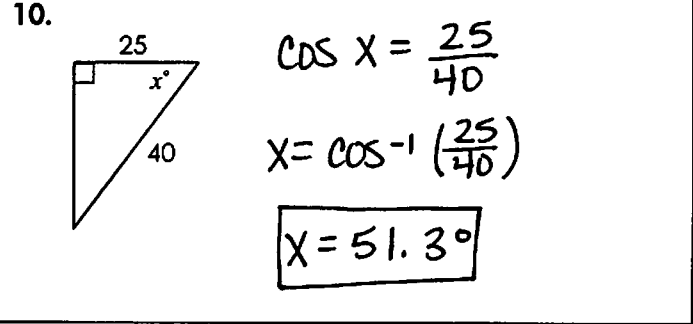 10.
25
x°
40
cos x = 25/40
x = cos-1 (25/40)
x = 51.3°